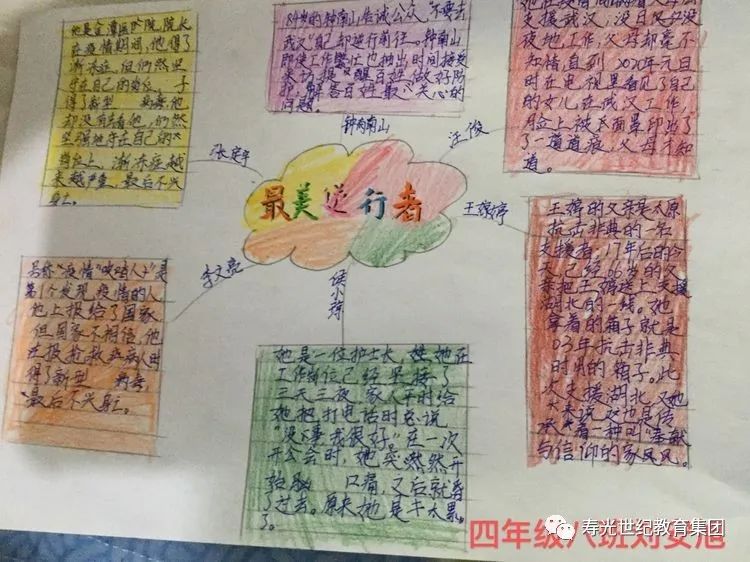 他是金潭医院院长
在疫情期间,他得了
渐冻症,但们然坚
守在自己的岗位。于
得了新型 病毒他
却没有去看他,们然
坚强地守在自己的
岗位上。渐冻症越
来越严重,最后不兴
张定宇
84岁的钟南山告诫公众"不要去
武汉"自己却逆行前往。钟南山
即使工作繁忙也抽出时间接受
采访,提醒百姓做好防
护,解答百姓最关心的
问题。
钟南山
支援武汉,没日没
夜地工作,父母却毫不
知情,直到2020年元日
时在电视里看见了自己
的女儿在武汉工作
脸上被口面罩印出了
了一道道痕,父母才知
道。
汪俊
最美逆行者
王婷的父亲是太原
抗击非典的一名
支援者,17年后的今
天已经66岁的父
亲把王婷送上支援
湖北的一线。她
拿着的箱子就是
03年抗击非典
时用的箱子。此
次支援湖北,对她
来说,也是传
承着一种叫"奉献
与信仰的家风。
李文亮
号称"疫情"吹哨人士"是
第1个发现疫情的人
他上报给了国家
但国家不相信,他
在抢救病人时
得了新型 病毒
最后不兴
侯小
她是一位护士长,她在
工作岗位已经坚持了
三天三夜,家人平时给
她把打电话时总说
"没事我很好。"在一次
开会时,她突然开
始脑 口痛,又后就昏
了过去。原来她是太累
了。
四年级八班刘安旭
寿光世纪教育集团